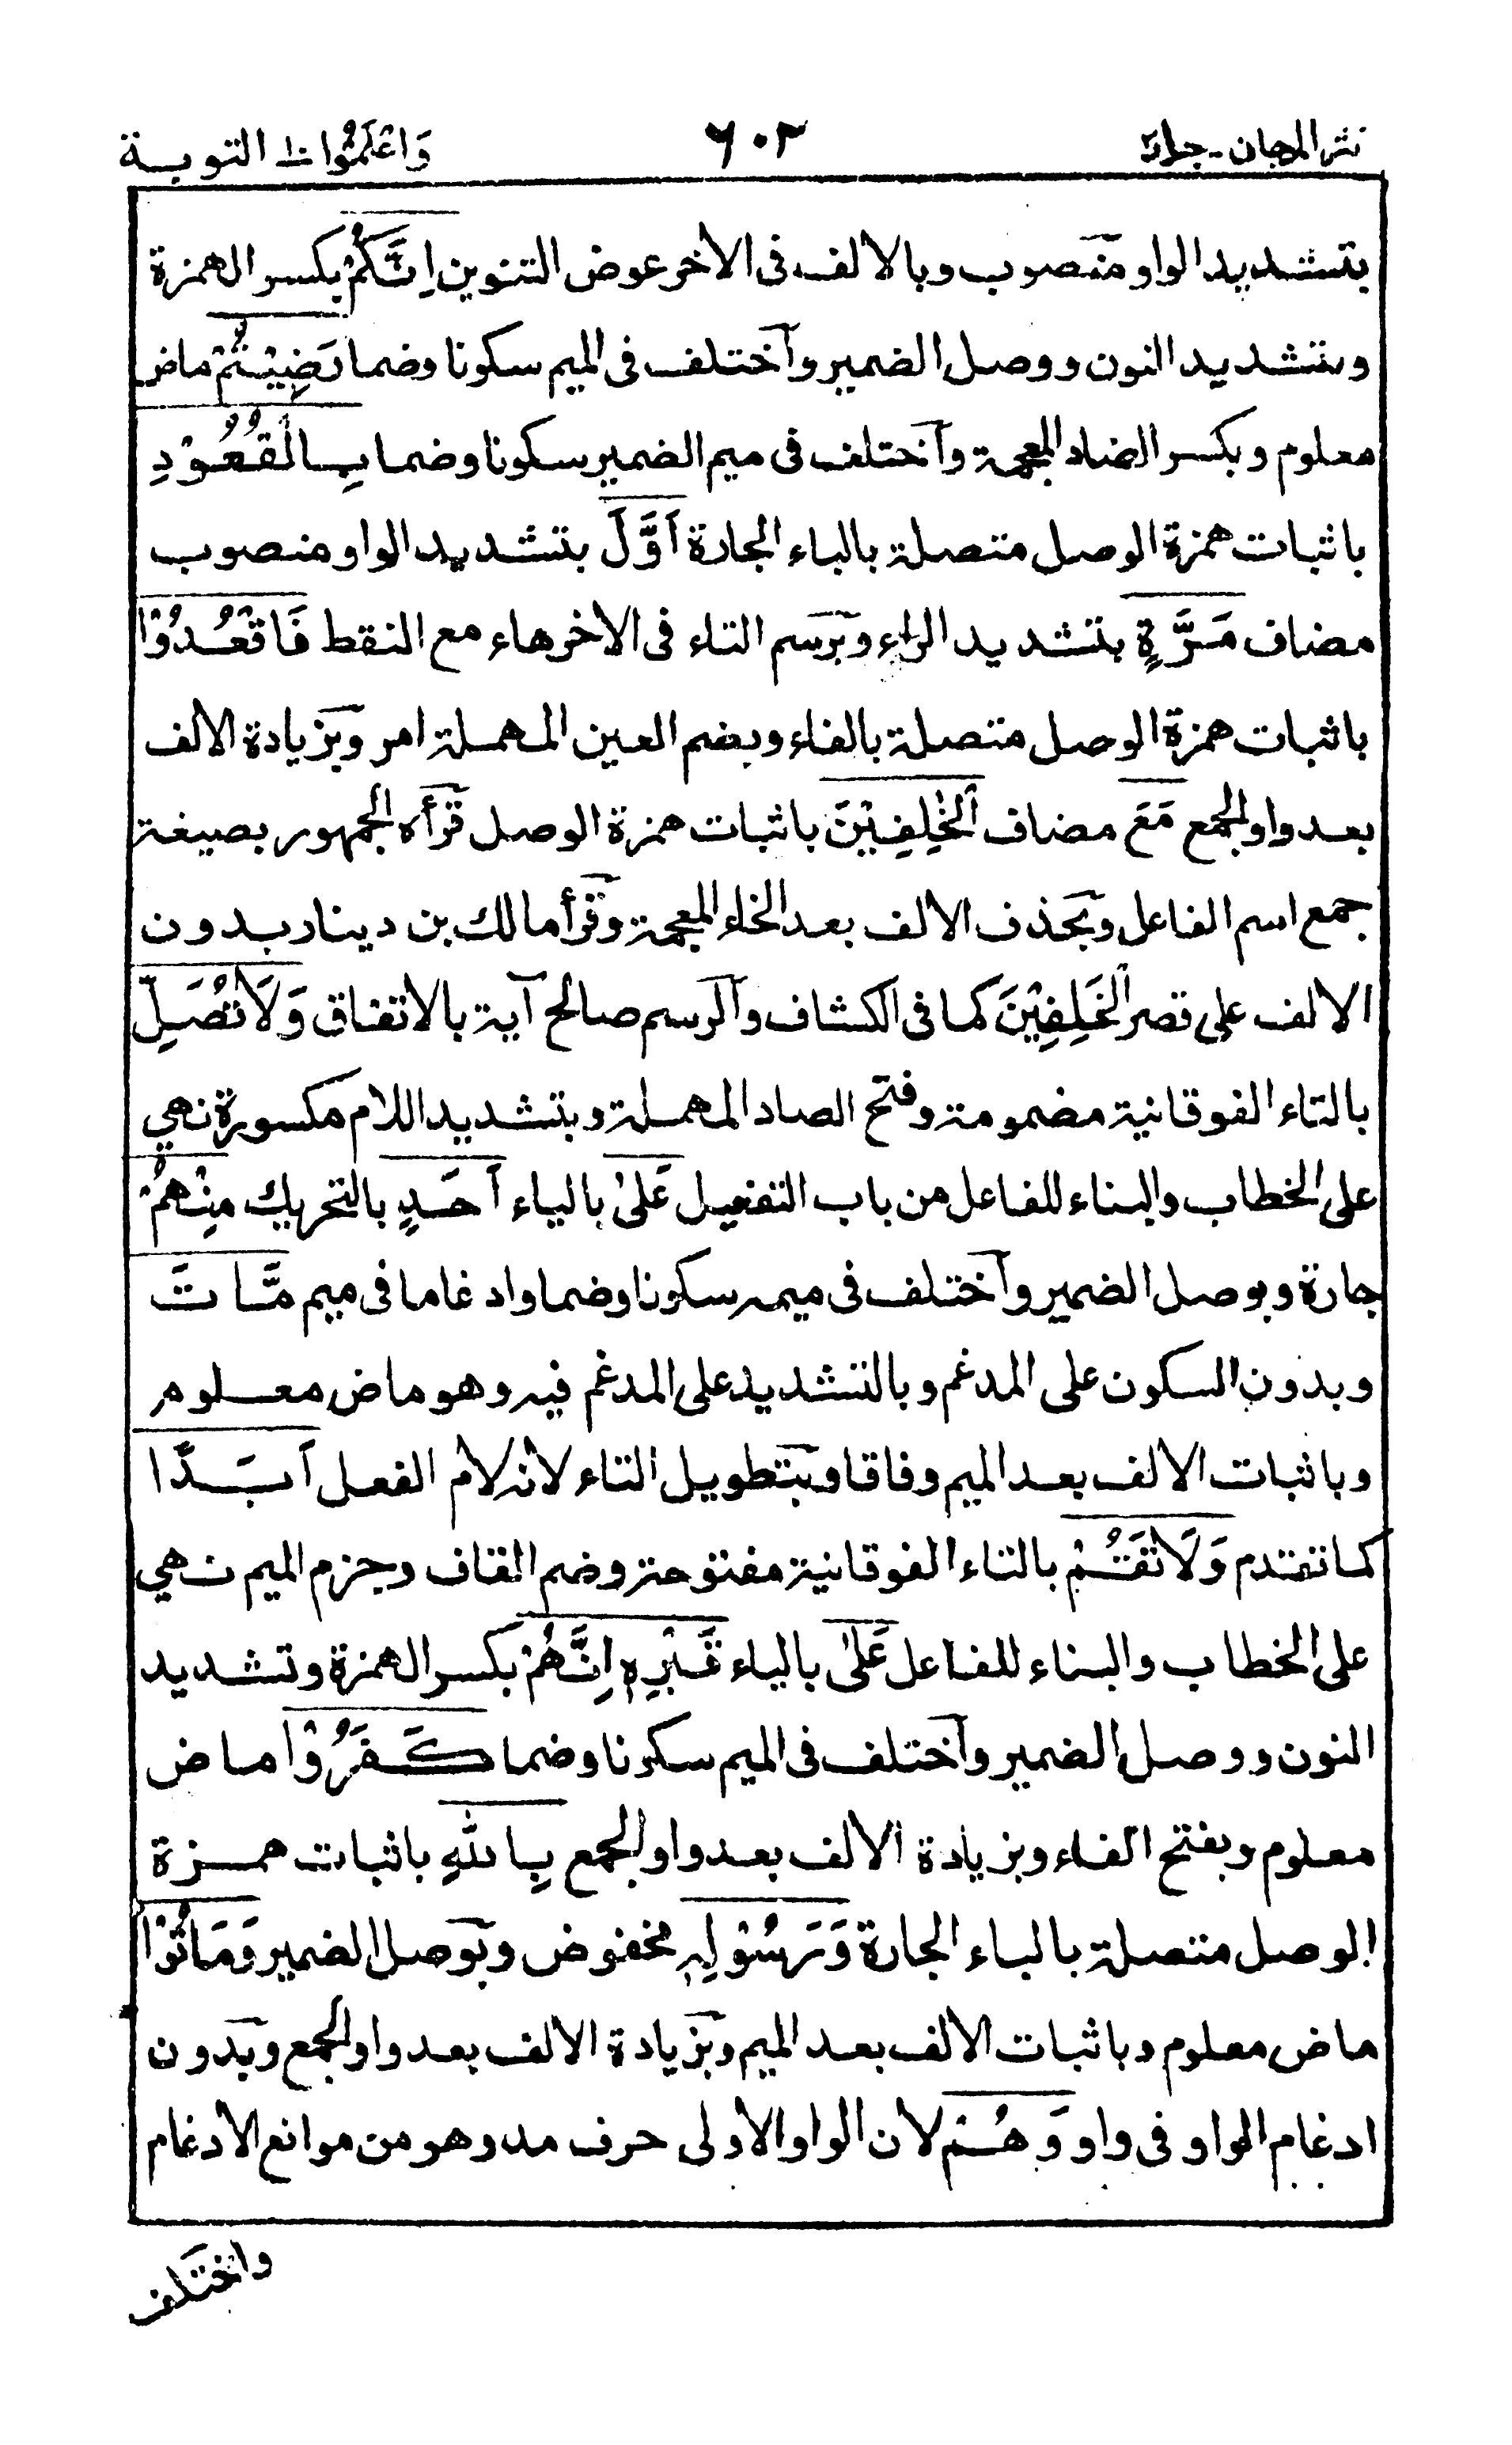 نثر المرجان - جلد٢ ٦٠٢ وَاعْلَمُوْا ١٠ التوبة
بتشديد الواو منصوب وبالالف فى الاخر عوض التنوين اِنَّكُمْ بكسر الهمزة
وبتشديد النون ووصل الضمير وآختلف فى الميم سكونا وضما رَضِيْتُمْ ماض
معلوم وبكسر الضاد المعجمة وآختلف فى ميم الضمير سكونا وضما بِالْقُعُوْدِ
باثبات همزة الوصل متصلة بالباء الجارة اَوَّلَ بتشديد الواو منصوب
مضاف مَرَّةٍ بتشديد الراء وبرسم التاء فى الاخر هاء مع النقط فَاقْعُدُوْا
باثبات همزة الوصل متصلة بالفاء وبضم العين المهملة امر وبزيادة الالف
بعد واو الجمع مَعَ مضاف الْخٰلِفِيْنَ باثبات همزة الوصل قرأه الجمهور بصيغة
جمع اسم الفاعل وبحذف الالف بعد الخاء المعجمة وقرأ مالك بن دينار بدون
الالف على قصر الْخَلِفِيْنَ كما فى الكشاف والرسم صالح آية بالاتفاق وَلَا تُصَلِّ
بالتاء الفوقانية مضمومة وفتح الصاد المهملة وبتشديد اللام مكسورة نهي
على الخطاب والبناء للفاعل من باب التفعيل عَلىٰ بالياء اَحَدٍ بالتحريك مِنْهُمْ
جارة وبوصل الضمير وآختلف فى ميمه سكونا وضما وادغاما فى ميم مَّاتَ
وبدون السكون على المدغم وبالتشديد على المدغم فيه وهو ماض معلوم
وباثبات الالف بعد الميم وفاقا وبتطويل التاء لانه لام الفعل اَبَدًا
كما تقدم وَلَا تَقُمْ بالتاء الفوقانية مفتوحة وضم القاف وجزم الميم نهي
على الخطاب والبناء للفاعل عَلىٰ بالياء قَبْرِهٖ اِنَّهُمْ بكسر الهمزة وتشديد
النون ووصل الضمير وآختلف فى الميم سكونا وضما كَفَرُوْا ماض
معلوم وبفتح الفاء وبزيادة الالف بعد واو الجمع بِاللّٰهِ باثبات همزة
الوصل متصلة بالباء الجارة وَرَسُوْلِهٖ مخفوض وبوصل الضمير وَمَاتُوْا
ماض معلوم وباثبات الالف بعد الميم وبزيادة الالف بعد واو الجمع وبدون
ادغام الواو فى واو وَهُمْ لان الواو الاولى حرف مد وهو من موانع الادغام
واختلف